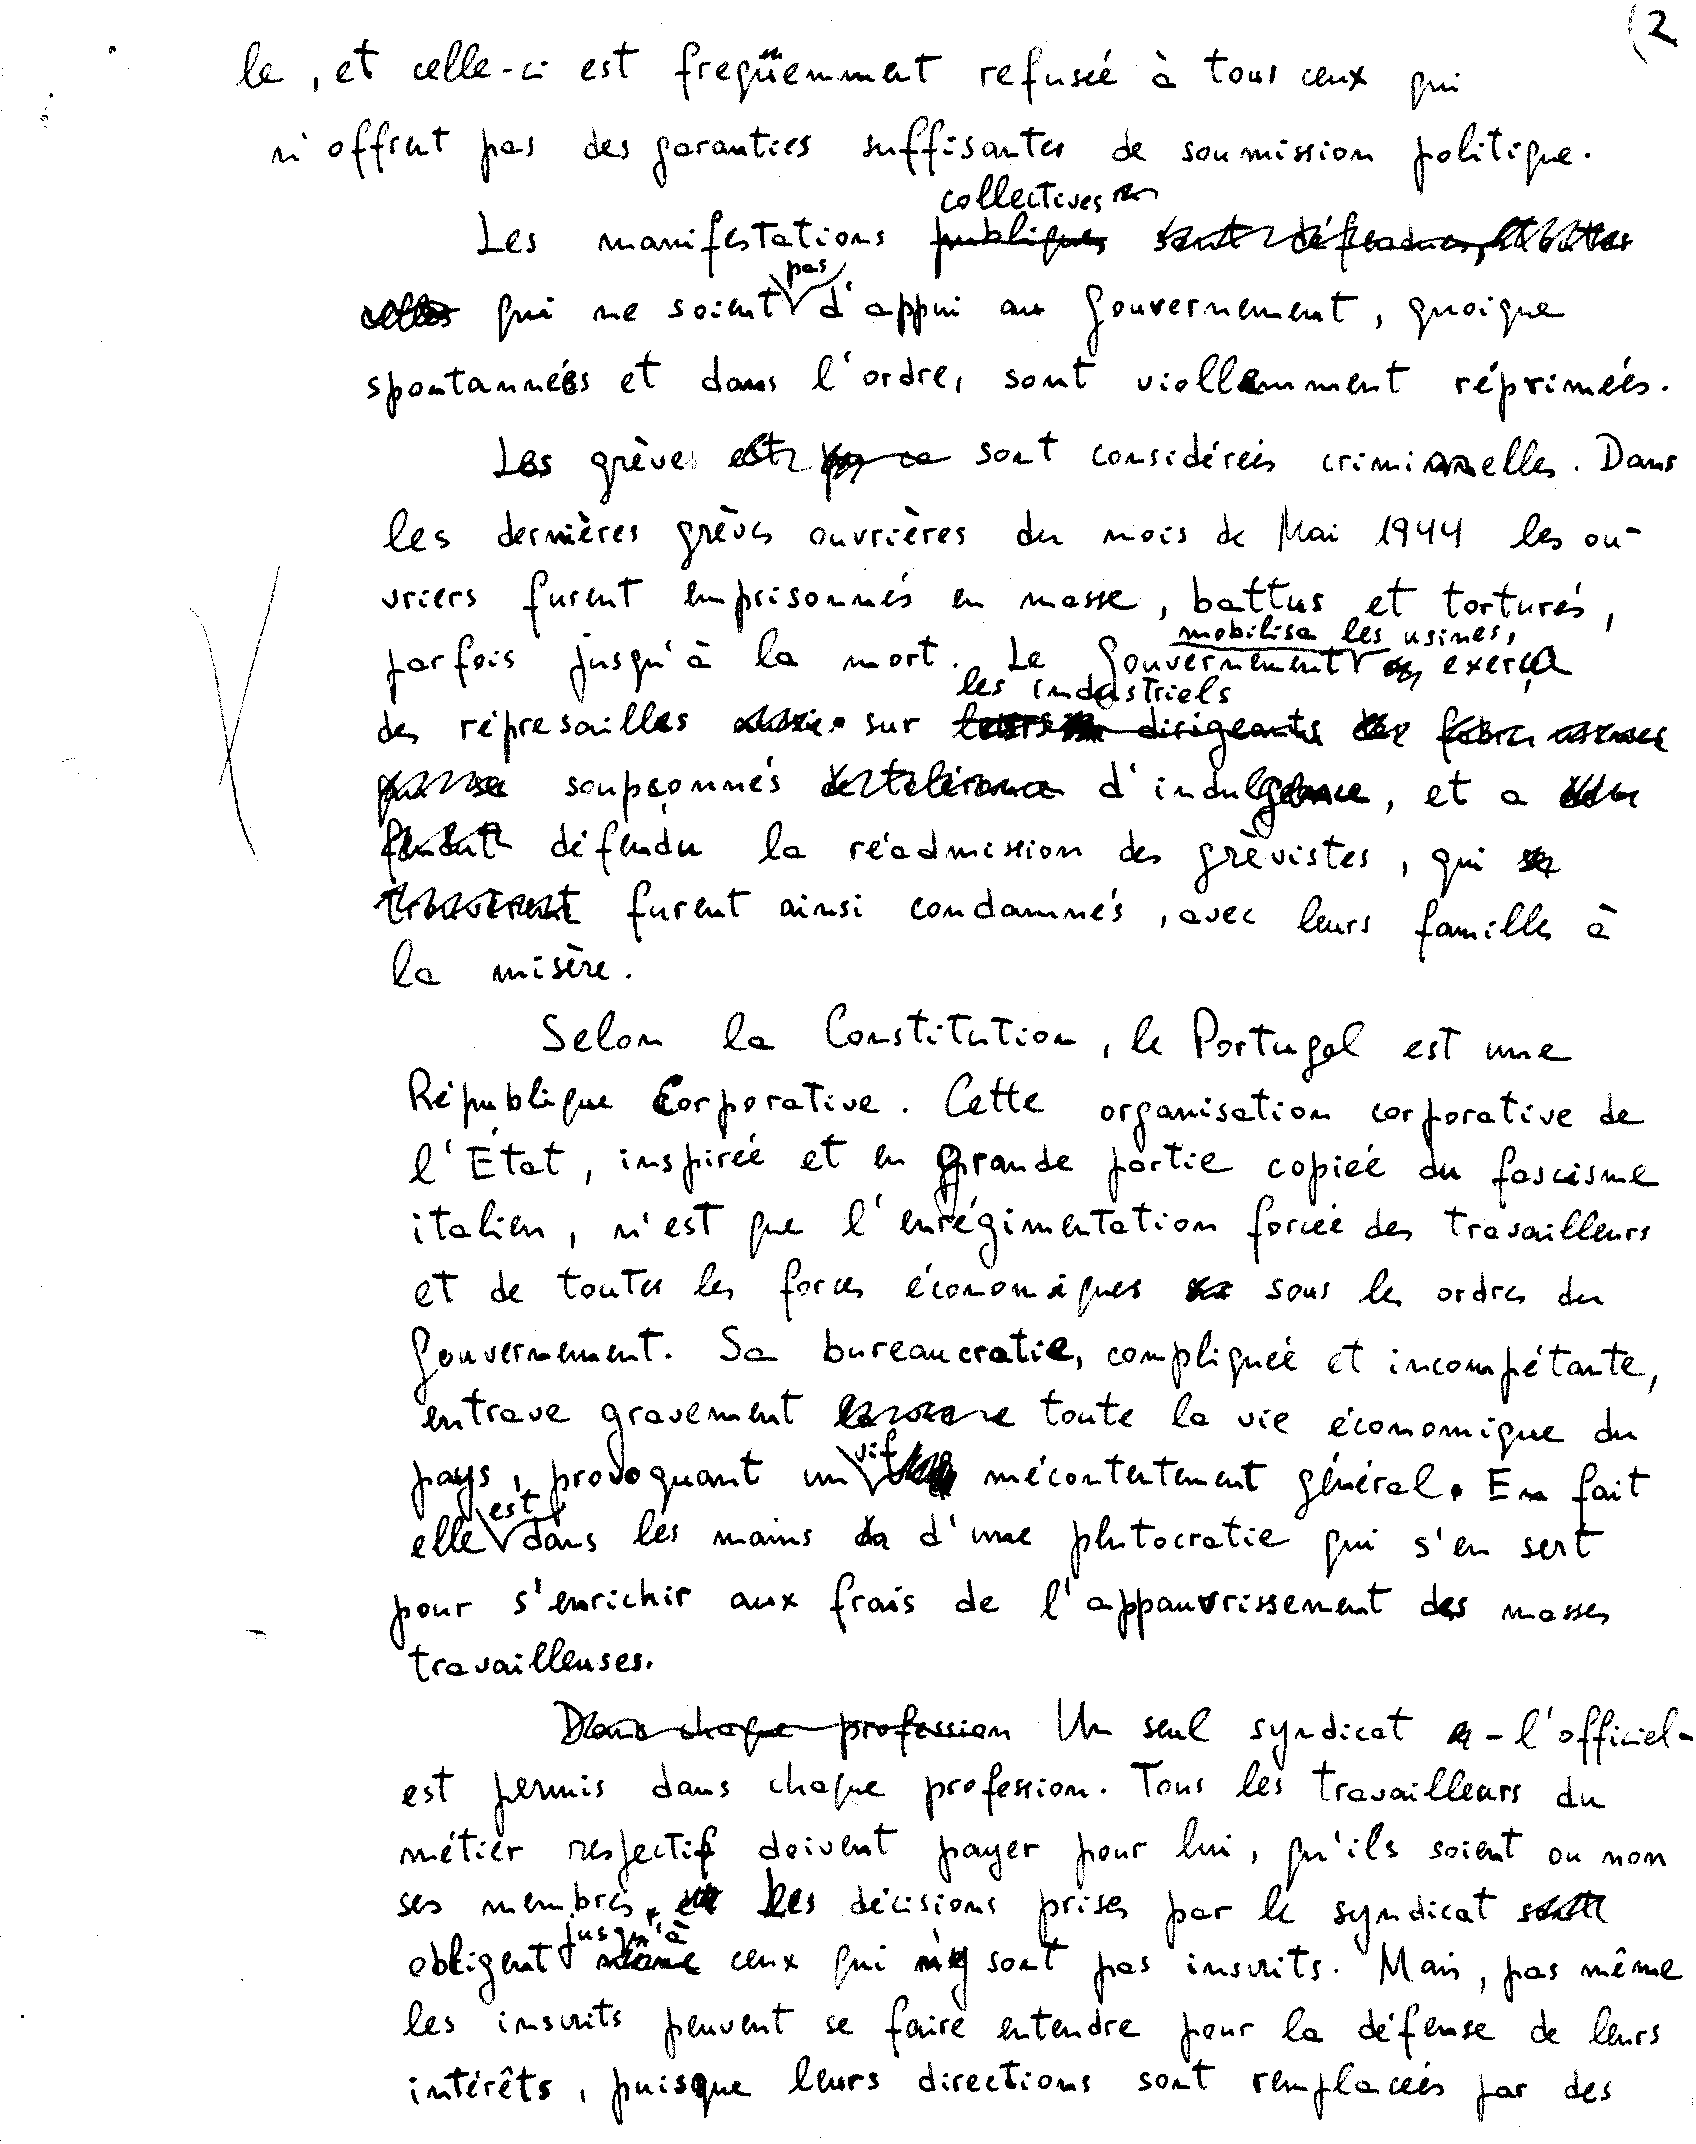 (2
le, et celle-ci est freqüemment refuseé à tous ceux qui
n'offrent pas des garanties suffisantes de soumission politique.
collectives
Les manifestations publiques sont défendues, et toutes
pas
celles qui ne soient d'appui au Gouvernement, quoique
spontanneés et dans l'ordre, sont viollemment réprimeés.
Les grèves sont considéreés criminelles. Dans
les dernières grèves ouvrières du mois de Mai 1944 les ou-
vriers furent emprisonnés en masse, battus et torturés,
mobilisa les usines,
parfois jusqu'à la mort. Le Gouvernement exerça
les industriels
des répresailles sur leurs dirigeants
soupçonnés de tolérance d'indulgence, et a
défendu la réadmission des grèvistes, qui se
trouvèrent furent ainsi condamnés, avec leurs familles à
la misère.
Selon la Constitution, le Portugal est une
République Corporative. Cette organisation corporative de
l'État, inspireé et en grande partie copieé du fascisme
italien, n'est que l'enrégimentation forceé des travailleurs
et de toutes les forces économiques sous les ordres du
Gouvernement. Sa bureaucratie, compliqueé et incompétante,
entrave gravement toute la vie économique du
vif
pays, provoquant un mécontentement général. En fait
est
elle dans les mains d'une plutocratie qui s'en sert
pour s'enrichir aux frais de l'appauvrissement des masses
travailleuses.
Dans chaque profession Un seul syndicat - l'officiel -
est permis dans chaque profession. Tous les travailleurs du
métier respectif doivent payer pour lui, qu'ils soient ou non
ses membres. Les décisions prises par le syndicat
jusqu'à
obligent même ceux qui n'y sont pas inscrits. Mais, pas même
les inscrits peuvent se faire entendre pour la défense de leurs
intérêts, puisque leurs directions sont remplaceés par des